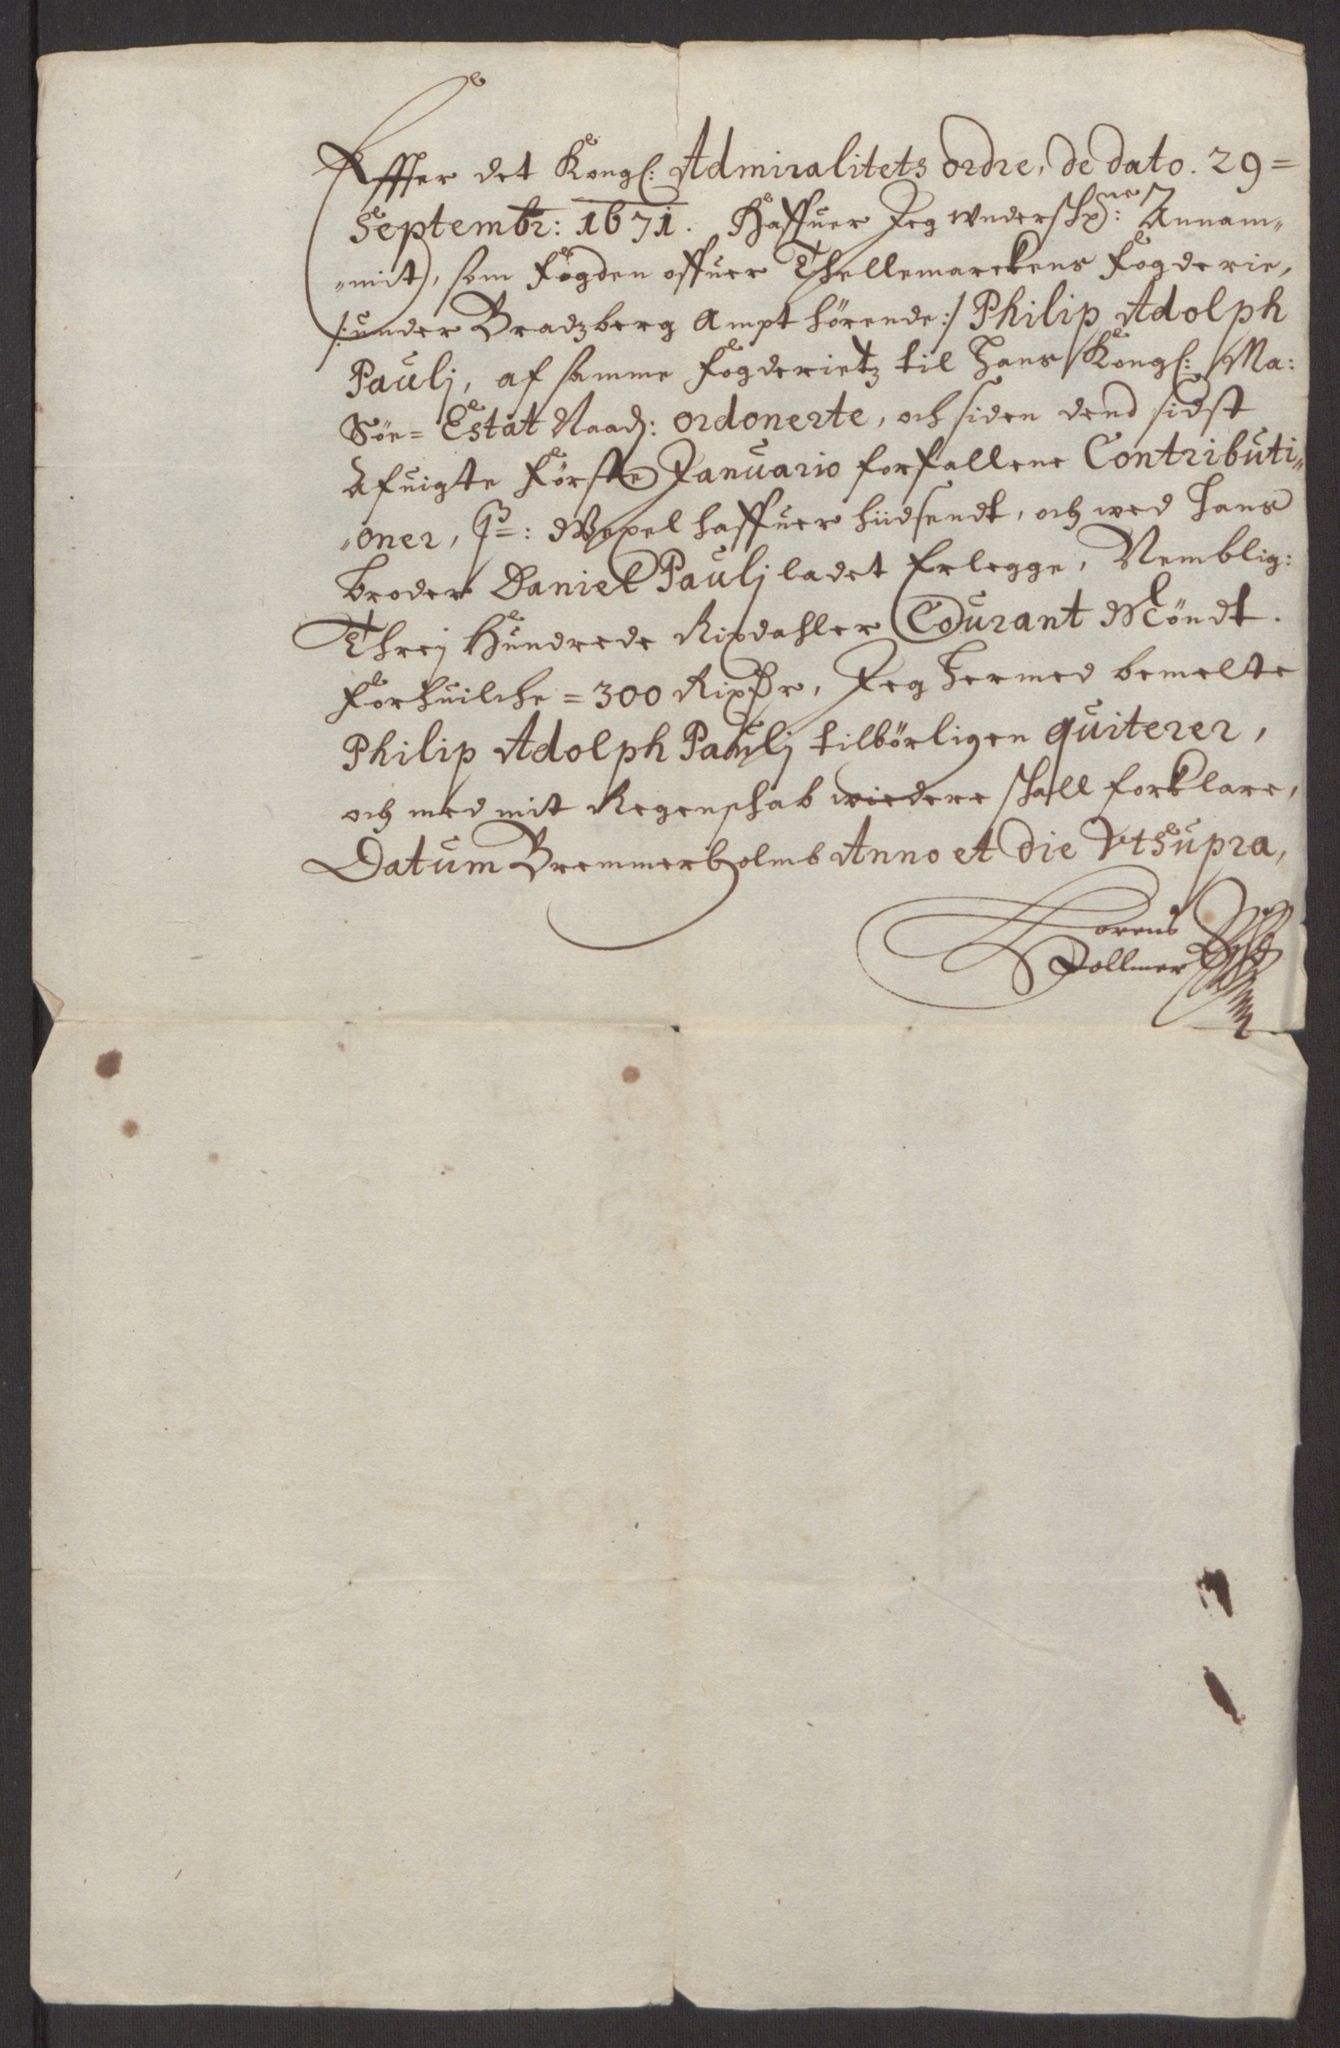 Effter det Kongl: Admiralitets ordre, de dato. 29=
Septembr: 1671. Haffuer Jeg underschr:ne Annam„
„mit, som Fogden offuer Thellemarckens Fogderie,
/:under Bradzberg Ampt hörende:/ Philip Adolph
Paulj, af samme Fogderietz til Hans Kongl: Ma:
Söe= Estat Naad: ordonerte, och siden dend sidst
Afuigte Förste Januario forfallene Contributi„
„oner, Wexel haffuer hidsendt, och wed Hans
broder Daniel Paulj ladet Erlegge, Nemblig:
Threj Hundrede Rixdahler Courant Möndt.
Forhuilche = 300 Rixdr, Jeg Hermed bemelte
Philip Adolph Paulj tilbörligen quiterer,
och med mit Regenschab wiedere schall forklare,
Datum Bremmerholmb Anno et die Vt Supra,
Lorens
Vollmer